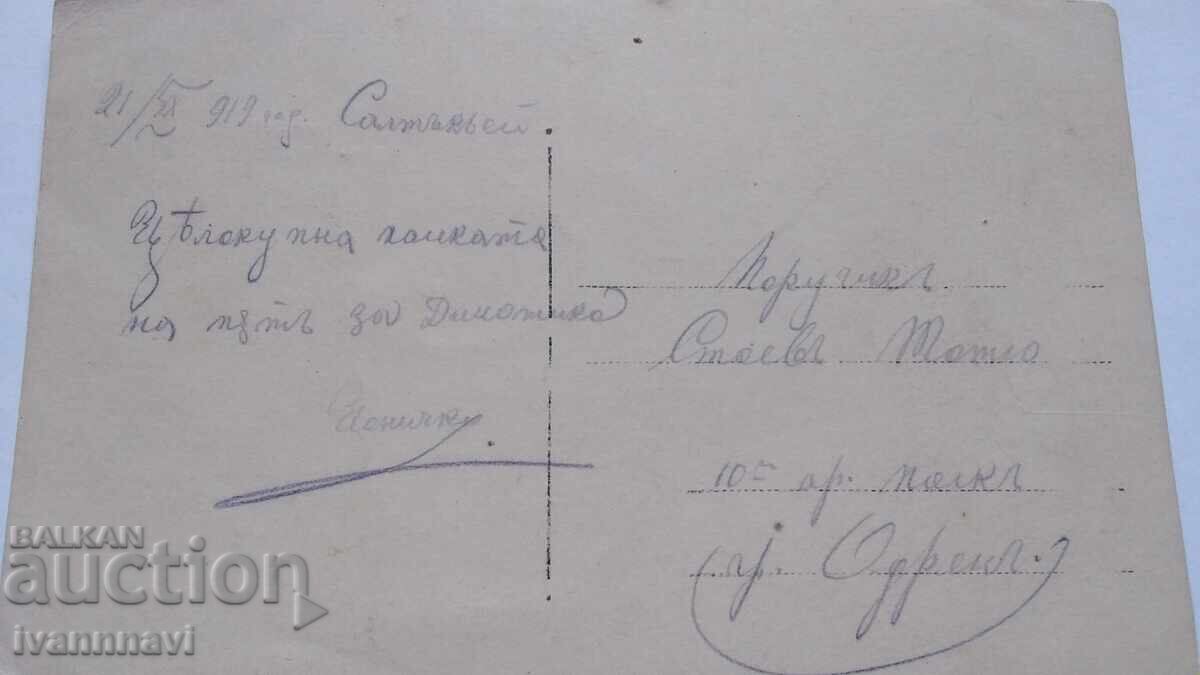 21/XII 912 год. Салтъкьой.
Цѣлокупна
на пѫть за Димотика
Поручикъ
Стоевъ Тотю
10ти ар. полкъ
(гр. Одринъ.)
BALKAN
auction
ivannnavi